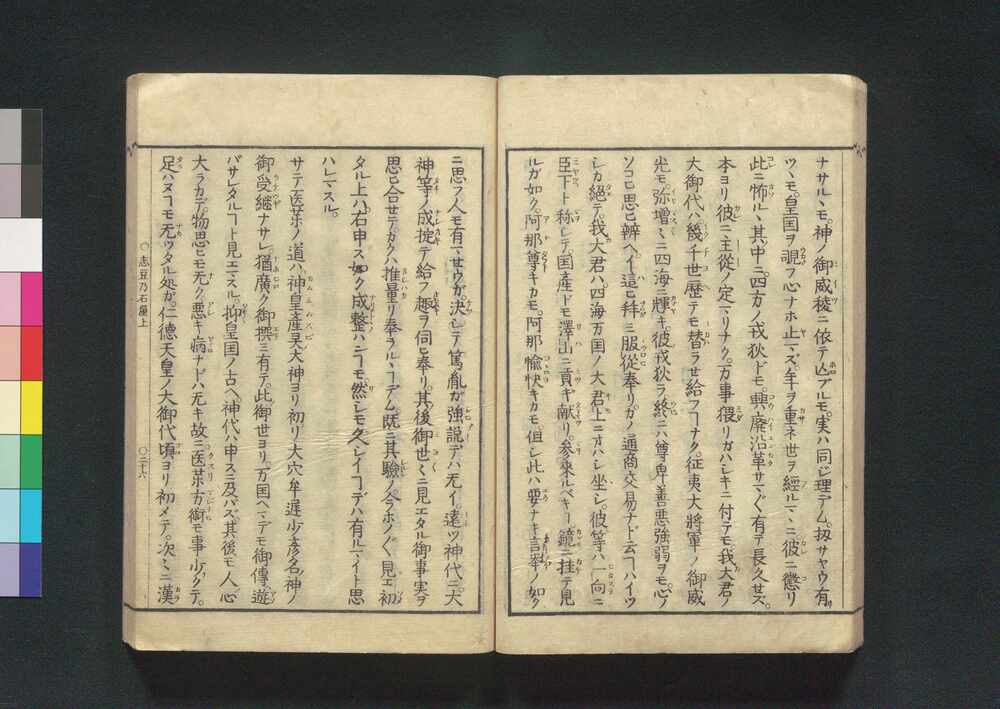 ナサルヽモ。神ノ御威稜ニ依テ亡ブルモ。実ハ同ジ理デム。扨サヤウ有リ
ツヽモ。皇国ヲ覗フ心ナホ止マズ。年ヲ重ネ世ヲ經ルマヽニ彼ニ懲リ
此ニ怖ルヽ其中ニ。四方ノ戎狄ドモ。興廃沿革サマ〴〵有テ長久セズ。
本ヨリ彼ニ主從ノ定マリナク。万事猥リガハシキニ付テモ我大君ノ
大御代ハ幾千世歴テモ替ラせ給フヿナク。征夷大將軍ノ御威
光モ。弥增々ニ四海ニ輝キ。彼戎狄ラ終ニハ尊卑善悪強弱ヲモ。心ノ
ソコヒ思ヒ辨ヘ。這ヒ拜ミ服從奉リ。カノ通商交易ナド云フヿハイツ
シカ絕テ。我大君ハ。四海万国ノ大君上ニオハシ坐シ。彼等ハ一向ニ
臣下ト称シテ国産ドモ澤山ニ貢キ献リ。参來ルベキヿ鏡ニ挂テ見
ルガ如ク。阿那尊キカモ。阿那愉快キカモ。但シ此ハ要ナキ言挙ノ如ク
ニ思フ人モ有マせウガ。決シテ篤胤ガ強説デハ无イ。遠ツ神代ニ大
神等ノ成掟テ給フ趣ヲ伺ヒ奉リ。其後御世々ニ見エタル御事実ヲ
思ヒ合せテ。カクハ推量リ奉ラルヽヿデム。既ニ其驗ノヘラホノ〴〵見エ初
タル上ハ。右申ス如ク成整ハンヿモ然シモ久シイヿデハ有ルマイト思
ハレマスル。
サテ医薬ノ道ハ。神皇産灵大神ヨリ初リ大穴牟遅少彦名神ノ
御受継ナサレ。猶廣ク御撰ミ有テ。此御世ヨリ。万国ヘマデモ御傳遊
バサレタルヿト見エマスル。抑皇国ノ古ヘ。神代ハ申スニ及バズ。其後モ人ノ心
大ラカデ。物思ヒモ无ク悪キ病ナドハ无キ故ニ。医薬方術モ事少クテ。
足ハヌヿモ无ツタル処ガ。仁德天皇ノ大御代頃ヨリ初メテ。次々ニ漢
○志豆乃石屋上
○三十六